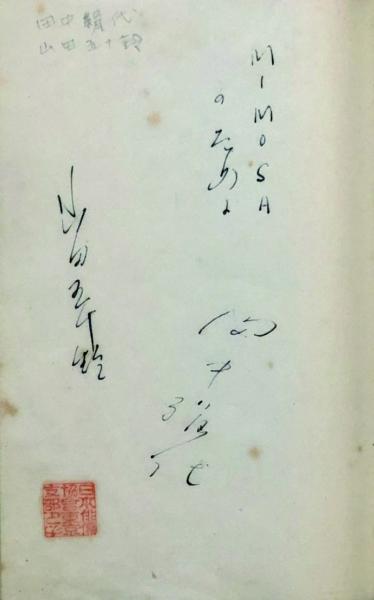 田中絹代
山田五十鈴
MIMOSA
のために
田中絹代
山田五十鈴